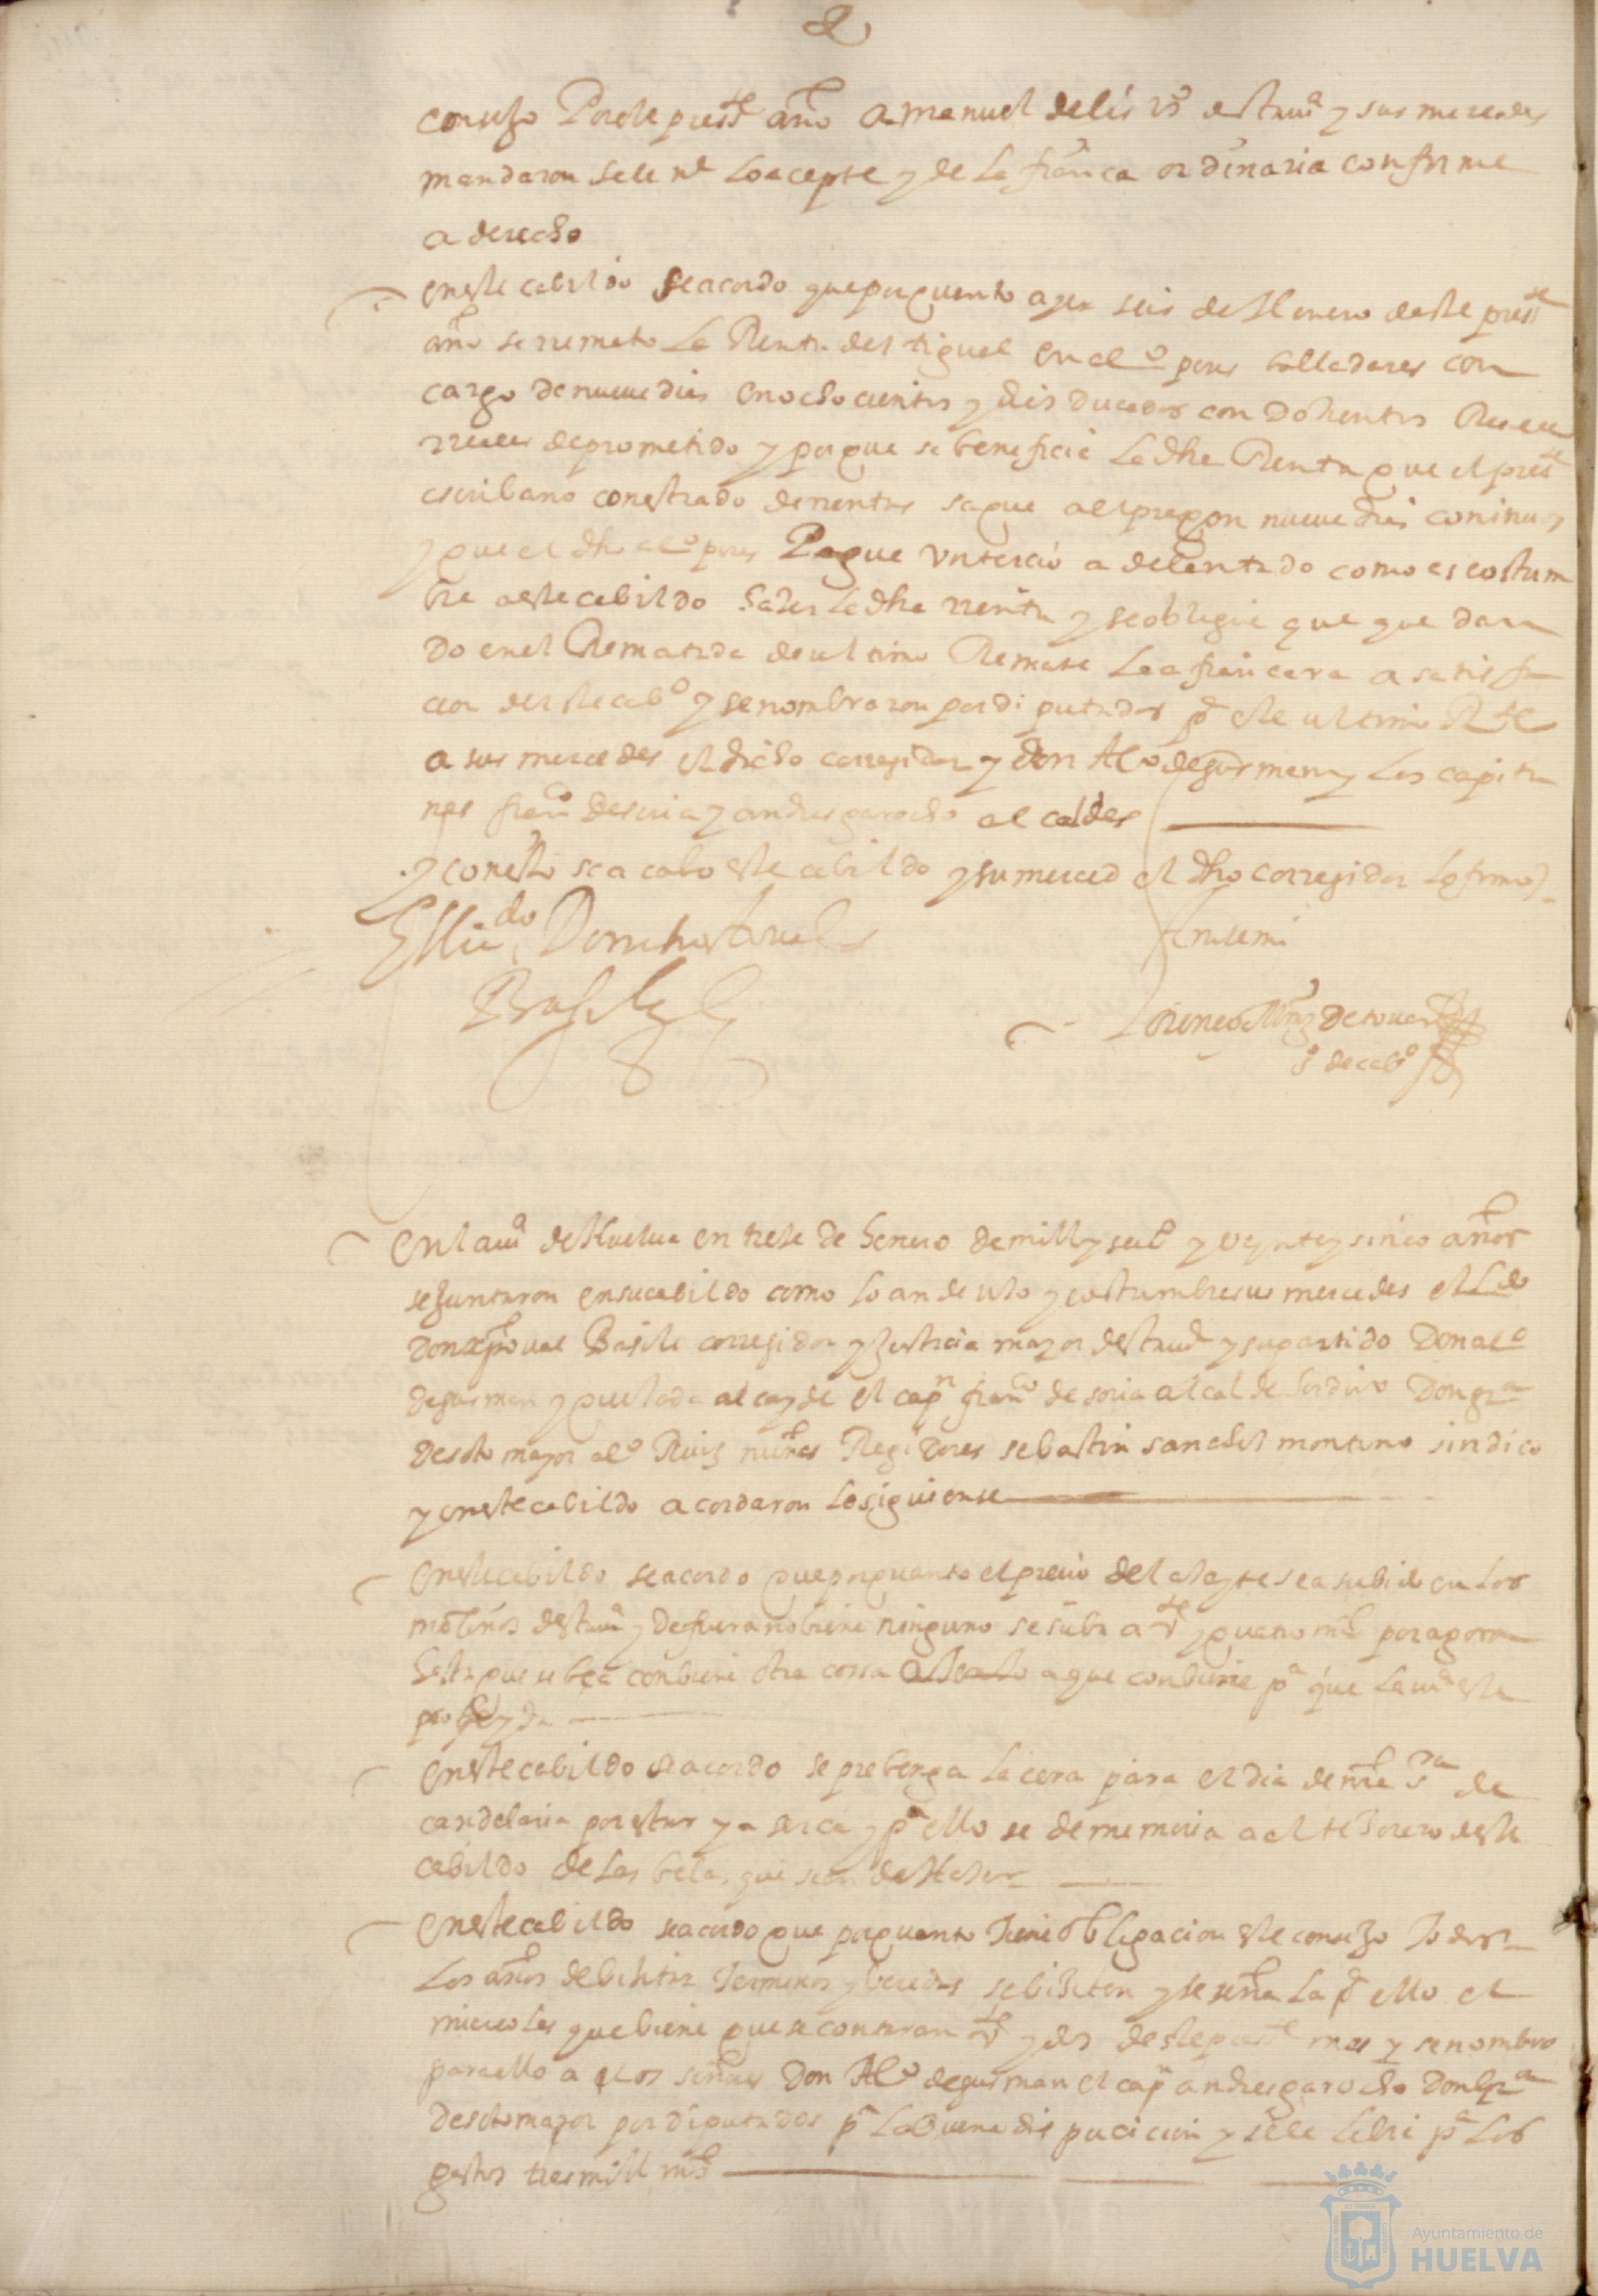 2
consejo Por este presᵗᵉ año a manuel de lis vº desta vᵃ y sus mercedes
mandaron se le nᵉ lo acepte y de la fiança ordinaria conforme
a derecho
en este cabildo se acordo que por quanto ayer seis de Henero deste presᵗᵉ
año se rremato la Renta del en alº peres balladares con
cargo de nueve dias en ochocientos y dies ducados con dosientos Reales
de prometido y porque se beneficie la dha Renta que el presᵗᵉ
escribano con estrado de rrentas saque al pregon nueve dias continuos
y que el dho alº peres Pague un tercio adelantado como es costum
bre a este cabildo haser la dha rrenta y se obligue que quedan
do en el Rematada de ultimo Remate la afiançara a satisfa
cion deste cabº y se nombraron por diputados pᵃ este ultimo Rᵗᵉ
a sus mercedes el dicho corregidor y don Alº de gusman y los capita
nes franᶜᵒ de soria y andres garocho alcaldes
y con esto se acabo este cabildo y su merced el dho corregidor lo firmo
El liᶜᵈᵒ Don
Basile
Ante mi
Lorenço mñz de tovar
sº de cabº
En la villᵃ de Huelva en trese de henero de mill y seisº y veynte y sinco años
se juntaron en su cabildo como lo an de uso y costumbre sus mercedes el Lᵈᵒ
Don xpoval Basile corregidor y Justicia mayor desta vᵃ y su partido Don alº
de gusman y quesada alcayde el capⁿ franᶜᵒ de soria alcalde hordinº Don grᵃ
de sotomayor alº Ruiz nuñes Regidores sebastian sanches montino sindico
y en este cabildo acordaron lo siguiente
en este cabildo se acordo que por quanto el precio del aseyte se a subido en los
molinos desta vᵃ y de fuera no biene ninguno se suba a vᵗᵉ y quatro mᵉˢ por agora
hasta que se bea conbiene otra cossa a que conbiene pᵃ que la vᵃ este
probeyda
en este cabildo se acordo se prebenga la cera para el dia de nrᵃ sʳᵃ de
candelaria por estar ya serca y pᵃ ello se de memoria a el tesorero deste
cabildo de las belas que se an de Haser
en este cabildo se acordo que por quanto tiene obligacion este consejo todos
los años de bisitar terminos y beredas se bisiten y se señala pᵃ ello el
miercoles que biene que se contaran vᵗᵉ y dos deste presᵗᵉ mes y se nombro
para ello a los señores Don Alº de gusman el capⁿ andres garocho Don grᵃ
de sotomayor por diputados pᵃ la buena dispusicion y se le libre pᵃ los
gastos tres mil mᵉˢ
Ayuntamiento de
HUELVA